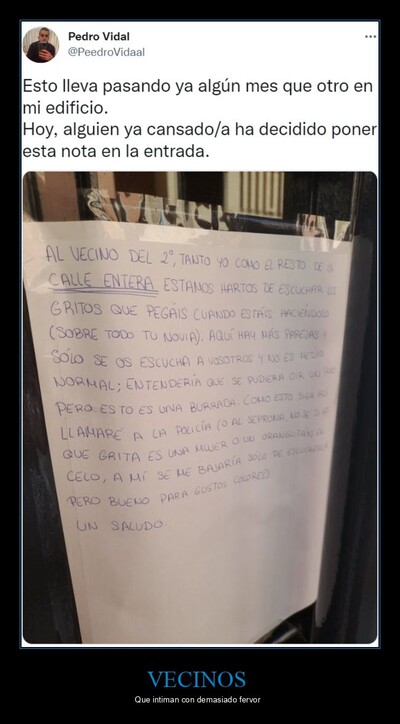 Pedro Vidal
@PeedroVidaal
Esto lleva pasando ya algún mes que otro en
mi edificio.
Hoy, alguien ya cansado/a ha decidido poner
esta nota en la entrada.
AL VECINO DEL 2º, TANTO YO COMO EL RESTO DE
CALLE ENTERA ESTAMOS HARTOS DE ESCUCHAR
GRITOS QUE PEGÁIS CUANDO ESTÁIS HACIÉNDOLO
(SOBRE TODO TU NOVIA). AQUÍ HAY MÁS PAREJAS Y
SÓLO SE OS ESCUCHA A VOSOTROS Y NO ES
NORMAL; ENTENDERÍA QUE SE PUDIERA OIR UN
PERO ESTO ES UNA BURRADA. COMO ESTO SIGA
LLAMARÉ A LA POLICÍA (O AL SEPRONA, NO SE SI
QUE GRITA ES UNA MUJER O UN ORANGUTÁN EN
CELO, A MÍ SE ME BAJARÍA SÓLO DE
PERO BUENO PARA GUSTOS COLORES)
UN SALUDO.
VECINOS
Que intiman con demasiado fervor